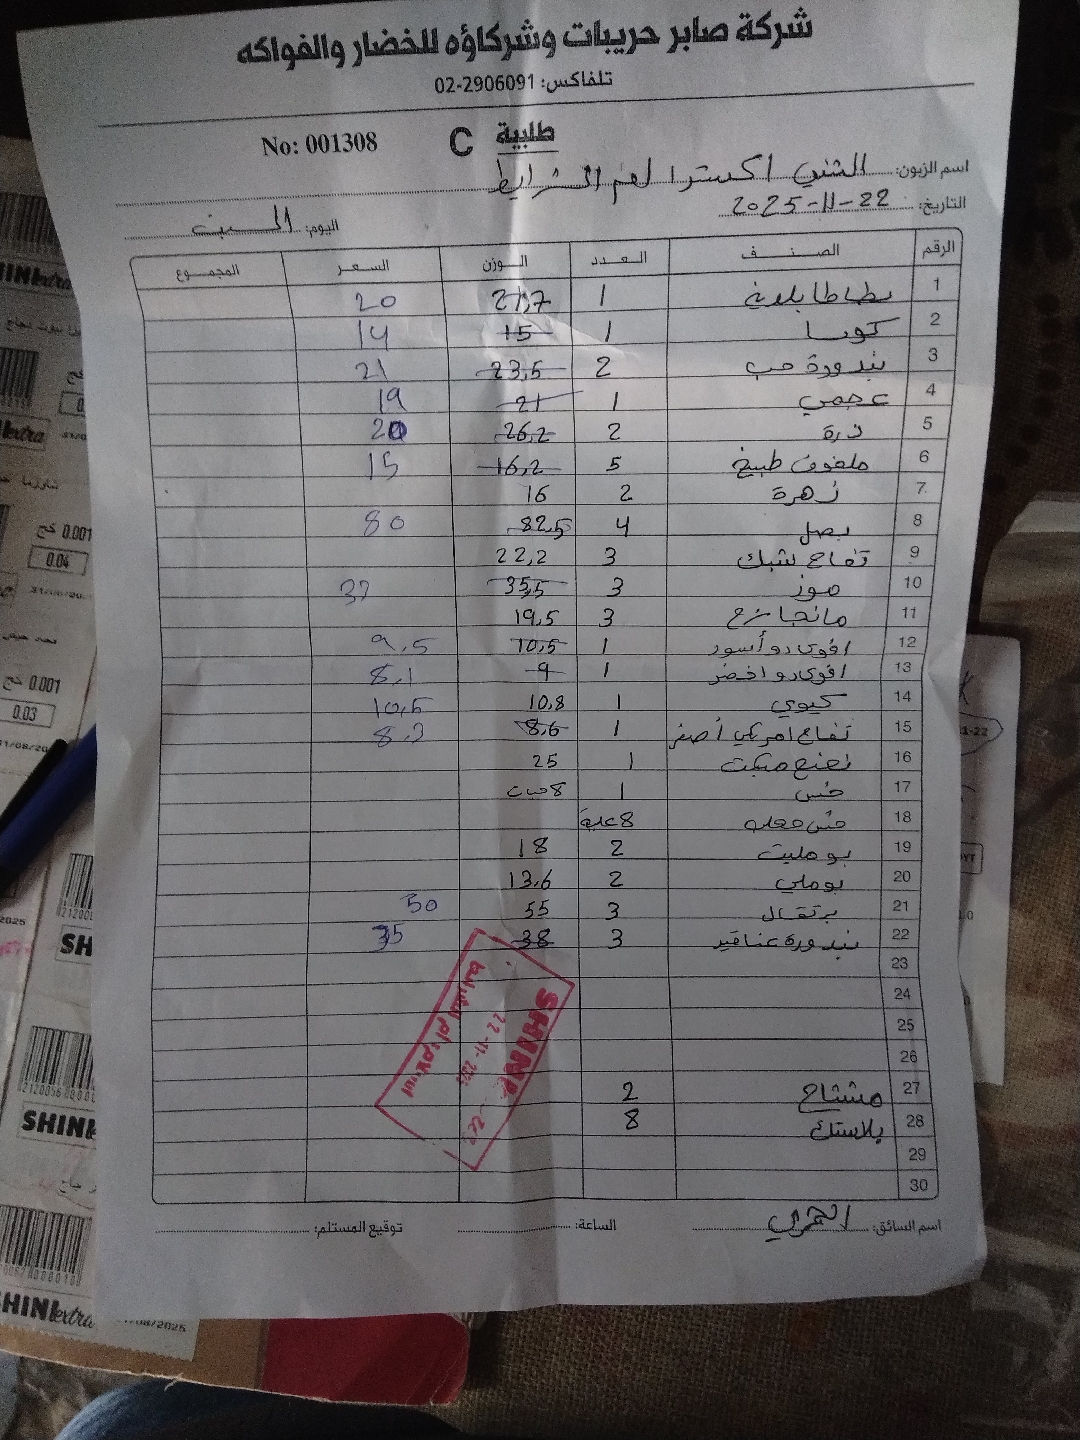 شركة صابر حريبات وشركاؤه للخضار والفواكه
تلفاكس: 02-2906091
No: 001308 C طلبية
اسم الزبون: الشني اكسترا لام الشرايط
التاريخ: 22-11-2025
اليوم: السبت
الرقم الصنف العدد الوزن السعر المجموع
1 بطاطا بلدية 1 21,7 20
2 كوسا 1 15 14
3 بندورة حب 2 23,5 21
4 عجمي 1 21 19
5 ذرة 2 26,2 20
6 ملفوف طبيخ 5 16,2 15
7 زهرة 2 16
8 بصل 4 82,5 80
9 تفاح شبك 3 22,2
10 موز 3 35,5 37
11 مانجا 3 19,5
12 افوكادو أسود 1 10,5 9,5
13 افوكادو اخضر 1 9 8,1
14 كيوي 1 10,8 10,6
15 تفاح امريكي أصفر 1 8,6 8,2
16 نعنع مبكت 1 25
17 خس 1 8 حبات
18 خس 8 علبة
19 بومليت 2 18
20 بوملي 2 13,6
21 برتقال 3 55 50
22 بندورة عناقيد 3 38 35
23
24
25
26
27 مشتاح 2
28 بلاستك 8
29
30
SHINI
22-11-2025
اسم السائق:
الساعة:
توقيع المستلم:
SHINI extra
0.001
0.04
0.001
0.03
SHINI
SHINI extra